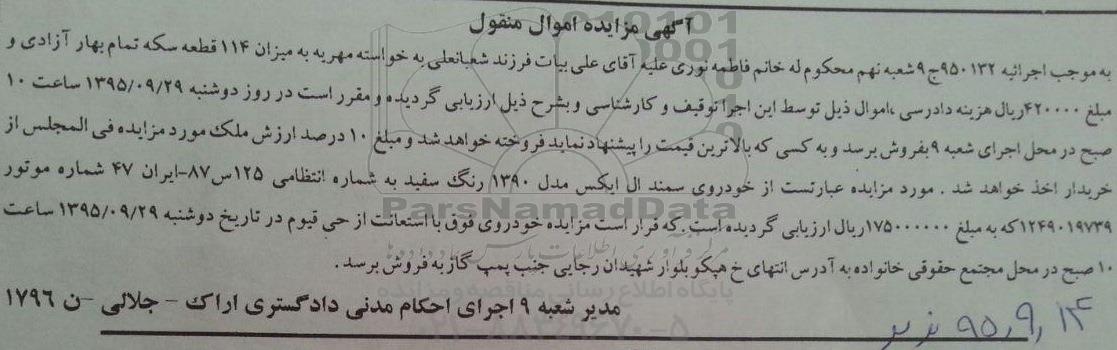 آگهی مزایده اموال منقول
به موجب اجرائیه ۹۵۰۱۳۲ج۹ شعبه نهم محکوم له خانم فاطمه نوری علیه آقای علی بیات فرزند شعبانعلی به خواسته مهریه به میزان ۱۱۴ قطعه سکه تمام بهار آزادی و
مبلغ ۴۲۰۰۰۰ریال هزینه دادرسی ،اموال ذیل توسط این اجرا توقیف و کارشناسی و بشرح ذیل ارزیابی گردیده و مقرر است در روز دوشنبه ۱۳۹۵/۰۹/۲۹ ساعت ۱۰
صبح در محل اجرای شعبه ۹ بفروش برسد و به کسی که بالاترین قیمت را پیشنهاد نماید فروخته خواهد شد و مبلغ ۱۰ درصد ارزش ملک مورد مزایده فی المجلس از
خریدار اخذ خواهد شد . مورد مزایده عبارتست از خودروی سمند ال ایکس مدل ۱۳۹۰ رنگ سفید به شماره انتظامی ۱۲۵س۸۷-ایران ۴۷ شماره موتور
۱۲۴۹۰۱۹۷۳۹ که به مبلغ ۱۷۵۰۰۰۰۰۰ریال ارزیابی گردیده است .که قرار است مزایده خودروی فوق با استعانت از حی قیوم در تاریخ دوشنبه ۱۳۹۵/۰۹/۲۹ ساعت
۱۰ صبح در محل مجتمع حقوقی خانواده به آدرس انتهای خ هپکو بلوار شهیدان رجایی جنب پمپ گاز به فروش برسد .
مدیر شعبه ۹ اجرای احکام مدنی دادگستری اراک - جلالی -ن ۱۷۹۶
۹۵,۹,۱۴
ParsNamadData
پایگاه اطلاع رسانی مناقصه و مزایده
۰۲۱-۸۸۳۴۹۶۷۰-۵